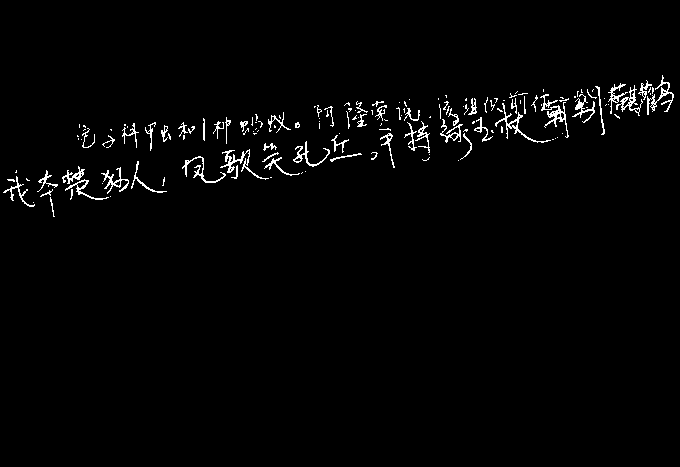 壳子科甲虫和1种蚂蚁。阿隆索说,该组织前任
我本楚狂人,凤歌笑孔丘。手持绿玉杖,朝别黄鹤